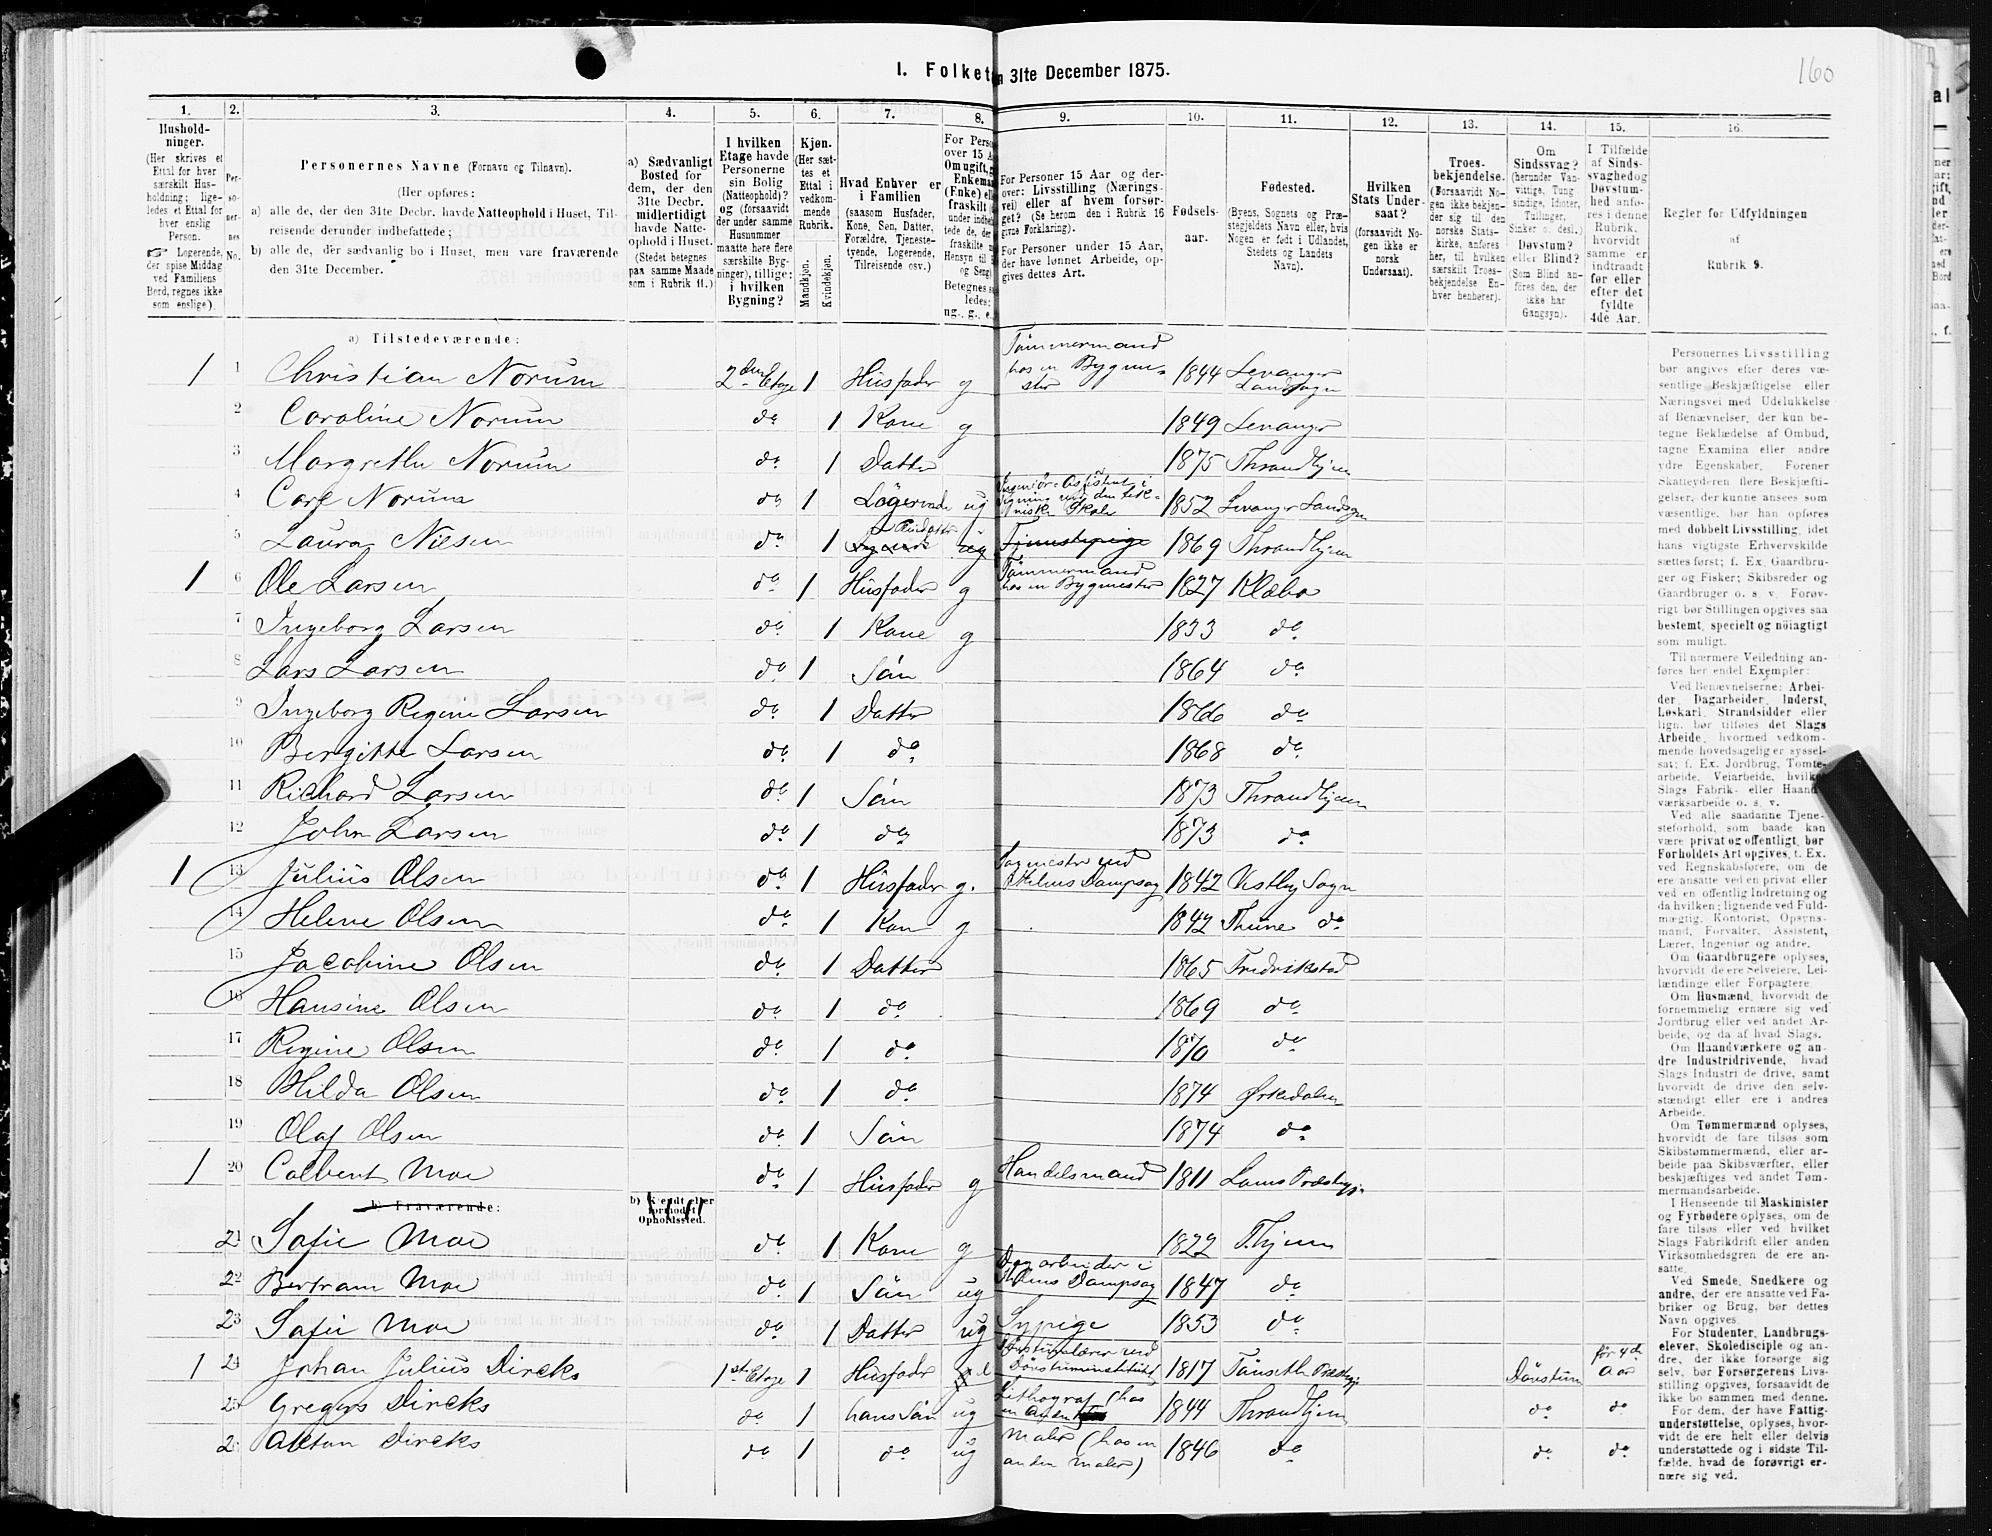 160
I. Folketa 31te December 1875.
1. 2. 3. 4. 5. 6. 7. 8. 9. 10. 11. 12. 13. 14. 15. 16.
Hushold-
ninger.
(Her skrives et
Ettal for hver
særskilt Hus-
holdning; lige-
ledes et Ettal for
hver enslig
Person.
☞ Logerende,
der spise Middag
ved Familiens
Bord, regnes ikke
som enslige).
Per-
so-
ner-
nes
No.
Personernes Navne (Fornavn og Tilnavn).
(Her opføres:
a) alle de, der den 31te Decbr. havde Natteophold i Huset, Til-
reisende derunder indbefattede;
b) alle de, der sædvanlig bo i Huset, men vare fraværende
den 31te December.
a) Sædvanligt
Bosted for
dem, der den
31te Decbr.
midlertidigt
havde Natte-
ophold i Huset.
(Stedet betegnes
paa samme Maade
som i Rubrik 11.)
I hvilken
Etage havde
Personerne
sin Bolig
(Natteophold)?
og (forsaavidt
der under samme
Husnummer
maatte here flere
særskilte Byg-
ninger), tillige:
i hvilken
Bygning?
Kjøn.
(Her sæt-
tes et
Ettal i
vedkom-
mende
Rubrik.
Mandkjøn.
Kvindekjøn.
Hvad Enhver er
i Familien
(saasom Husfader,
Kone, Søn, Datter,
Forældre, Tjeneste-
tyende, Logerende,
Tilreisende osv.)
For Perso
over 15 A
Om ugift, g
Enkema
(Enke) elle
fraskilt
ledes:
ug., g., e.
For Personer 15 Aar og der-
over: Livsstilling (Nærings-
vei) eller af hvem forsør-
get? (Se herom den i Rubrik 16
givne Forklaring).
For Personer under 15 Aar,
der have lønnet Arbeide, op-
gives dettes Art.
Fødsels-
aar.
Fødested.
(Byens, Sognets og Præ-
stegjeldets Navn eller, hvis
Nogen er født i Udlandet,
Stedets og Landets
Navn).
Hvilken
Stats Under-
saat?
(forsaavidt No-
gen ikke er
norsk
Undersaat).
Troes-
bekjendelse.
(Forsaavidt No-
gen ikke bekjen-
der sig til den
norske Stats-
kirke, anføres
her, til hvilken
særskilt Troes-
bekjendelse En-
hver henhører).
Om
Sindssvag?
(herunder Van-
vittige, Tung
sindige, Idioter,
Tullinger,
Sinker o. desl.)
Døvstum?
eller Blind?
(Som Blind an-
føres den, der
ikke har
Gangsyn).
I Tilfælde
af Sinds-
svaghed og
Døvstum-
hed anfø-
res i denne
Rubrik,
hvorvidt
samme er
indtraadt
før eller
efter det
fyldte
4de Aar.
Regler for Udfyldningen
af
Rubrik 9.
a) Tilstedeværende:
1 1 Christian Norum 2den Etage 1 Husfader g Tømmermand hos en Bygmester 1844 Levanger Landsogn
2 Caroline Norum do 1 Kone g 1849 Levanger
3 Margrethe Norum do 1 Datter 1875 Throndhjem
4 Carl Norum do 1 Logerende ug 1852 Levanger Landsogn
5 Laura Nilsen do 1 ug Tjenestepige 1869 Throndhjem
1 6 Ole Larsen do 1 Husfader g Tømmermand hos en Bygmester 1827 Klæbo
7 Ingeborg Larsen do 1 Kone g 1833 do
8 Lars Larsen do 1 Søn 1864 do
9 Ingeborg Regine Larsen do 1 Datter 1866 do
10 Bergitte Larsen do 1 do 1868 do
11 Richard Larsen do 1 Søn 1873 Throndhjem
12 John Larsen do 1 do 1873 do
1 13 Julius Olsen do 1 Husfader g. Sagmester ved Dampsag 1842 Vestby Sogn
14 Helene Olsen do 1 Kone g 1842 Thune do
15 Jacobine Olsen do 1 Datter 1865 Fredrikstad
16 Hansine Olsen do 1 do 1869 do
17 Regine Olsen do 1 do 1870 do
18 Hilda Olsen do 1 do 1874 Ørkedalen
19 Olaf Olsen do 1 Søn 1874 do
1 20 Colbent Moe do 1 Husfader g Handelsmand 1811
b) Fraværende: b) Kjendt eller formodet Opholdssted.
21 Sofie Moe do 1 Kone g 1822 T.hjem
22 Bertram Moe do 1 Søn ug Dagarbeider i Dampsag 1847 do
23 Sofie Moe do 1 Datter ug Sypige 1853 do
1 24 Johan Julius Dircks 1ste Etage 1 Husfader Døvstuminstitutet 1817 Døvstum før 4de Aar
25 Gregers Dircks do 1 hans Søn ug Lithograf (hos en anden 1844 Throndhjem do do
2 Anton Dircks do 1 do ug Maler (hos en anden Maler) 1846 do do do
Personernes Livsstilling
bør angives efter deres væ-
sentlige Beskjæftigelse eller
Næringsvei med Udelukkelse
af Benævnelser, der kun be-
tegne Beklædelse af Ombud,
tagne Examina eller andre
ydre Egenskaber. Forener
Skatteyderen flere Beskjæfti-
gelser, der kunne ansees som
væsentlige, bør han opføres
med dobbelt Livsstilling, idet
hans vigtigste Erhvervskilde
sættes først; f. Ex. Gaardbru-
ger og Fisker; Skibsreder og
Gaardbruger o. s. v. Forøv-
rigt bør Stillingen opgives saa
bestemt, specielt og nöiagtigt
som muligt.
Til nærmere Veiledning an-
føres her endel Exempler:
Ved Benævnelserne: Arbei-
der, Dagarbeider, Inderst,
Løskarl, Strandsidder eller
lign. bør tilføies det Slags
Arbeide, hvormed vedkom-
mende hovedsagelig er syssel-
sat; f. Ex. Jordbrug, Tomte-
arbeide, Veiarbeide, hvilket
Slags Fabrik- eller Haand-
værksarbeide o. s. v.
Ved alle saadanne Tjene-
steforhold, som baade kan
være privat og offentligt, bør
Forholdets Art opgives, t. Ex.
ved Regnskabsførere, om de
ere ansatte ved en privat eller
ved en offentlig Indretning og
da hvilken; lignende ved Fuld-
mægtig, Kontorist, Opsyns-
mand, Forvalter, Assistent,
Lærer, Ingeniør og andre.
Om Gaardbrugere oplyses,
hvorvidt de ere Selveiere, Lei-
lændinge eller Forpagtere.
Om Husmænd, hvorvidt de
fornemmelig ernære sig ved
Jordbrug eller ved andet Ar-
beide, og da af hvad Slags.
Om Haandværkere og an-
dre Industridrivende, hvad
Slags Industri de drive, samt
hvorvidt de drive den selv-
stændigt eller ere i andres
Arbeide.
Om Tømmermænd oplyses,
hvorvidt de fare tilsøs som
Skibstømmermænd, eller ar-
beide paa Skibsværfter, eller
beskjæftiges ved andet Tøm-
mermandsarbeide.
I Henseende til Maskinister
og Fyrbødere oplyses, om de
fare tilsøs eller ved hvilket
Slags Fabrikdrift eller anden
Virksomhedsgren de ere an-
satte.
Ved Smede, Snedkere og
andre, der ere ansatte ved Fa-
briker og Brug, bør dettes
Navn opgives.
For Studenter, Landbrugs-
elever, Skoledisciple og an-
dre, der ikke forsørge sig
selv, bør Forsørgerens Livs-
stilling opgives, forsaavidt de
ikke bo sammen med denne.
For dem, der have Fattig-
understøttelse, oplyses, hvor-
vidt de ere helt eller delvis
understøttede og i sidste Til-
fælde, hvad de forøvrigt er-
nære sig ved.